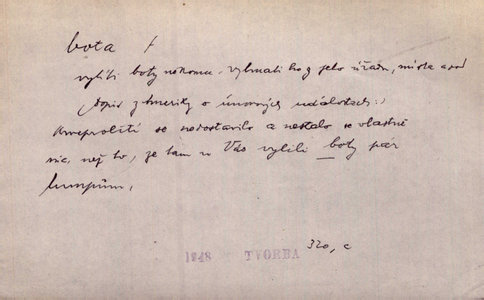 bota f
vylíti boty někomu. vyhnati ho z jeho úřadu, místa a pod
(dopis z Ameriky o únorových událostech:)
Krveprolití se nedostavilo a nestalo se vlastně
nic, než to, že tam u Vás vylili boty pár
lumpům,
320, c
1948 TVORBA